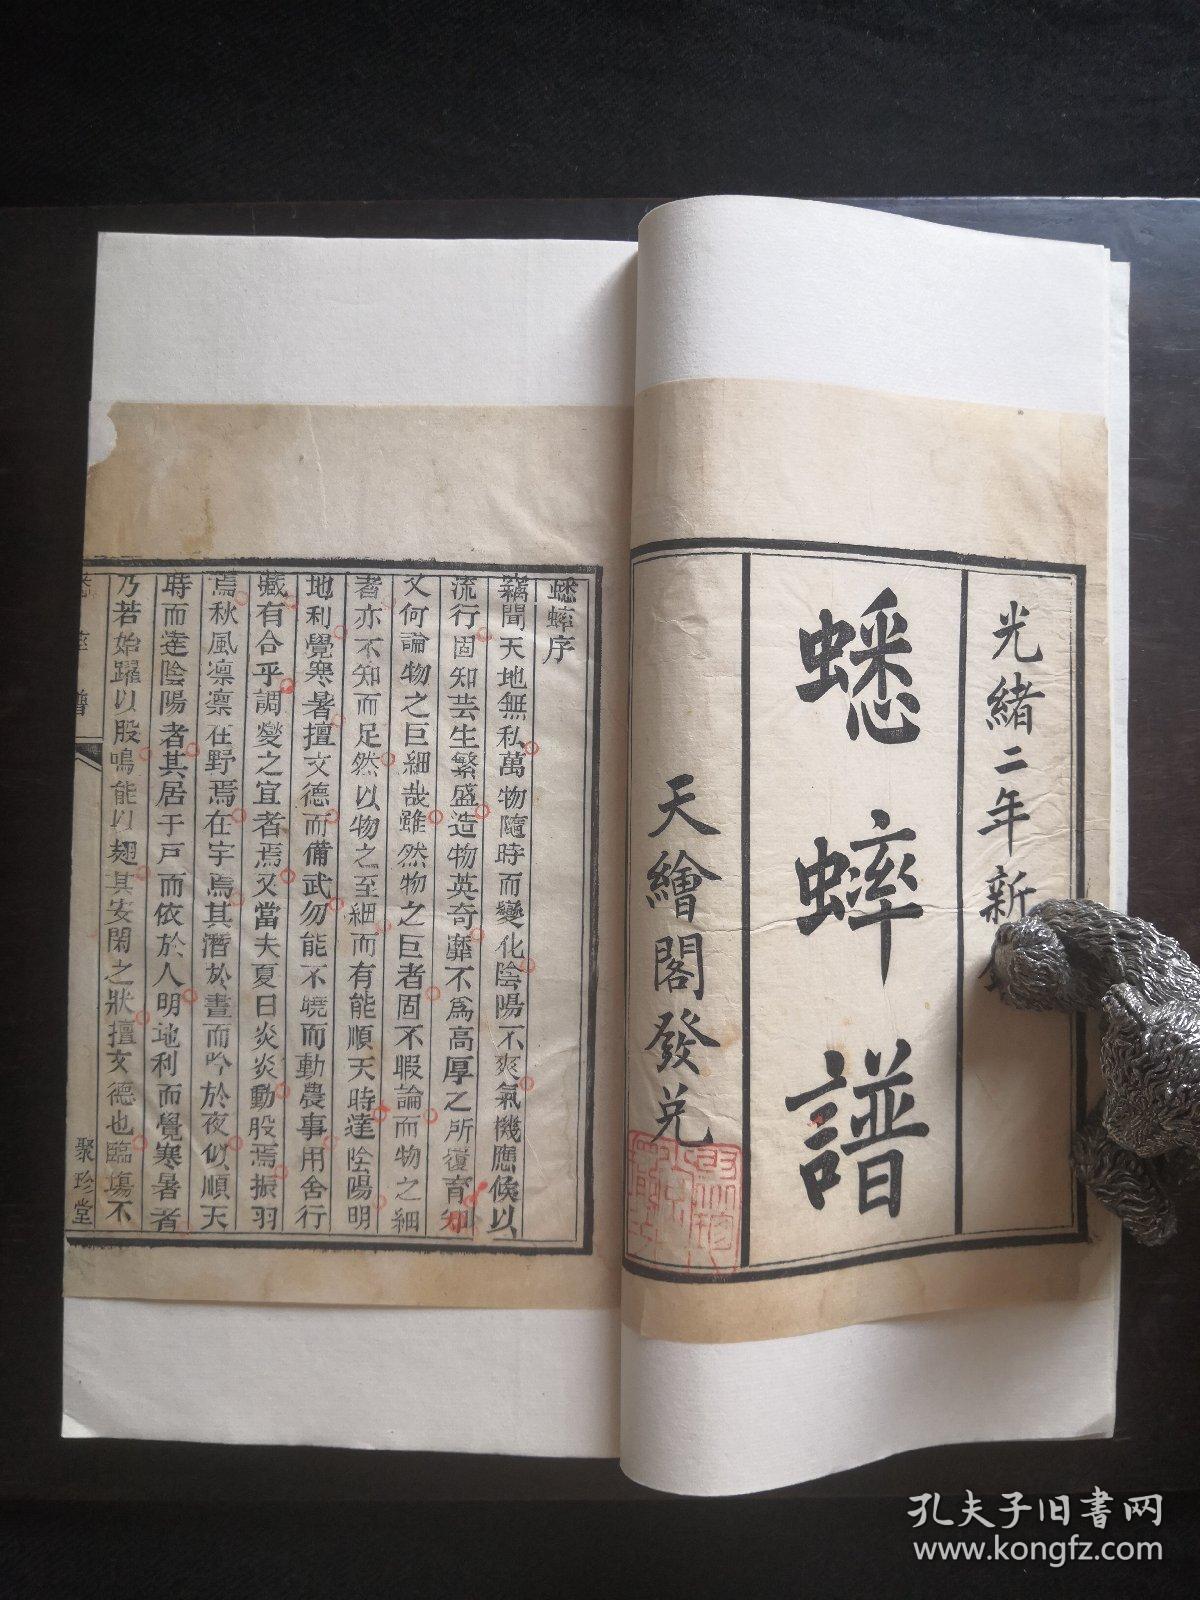 光緒二年新
蟋蟀譜
天繪閣發兌
蟋蟀序
竊聞天地無私萬物隨時而變化陰陽不爽氣機應候以
流行固知芸生繁盛造物英奇靡不爲高厚之所覆育知
又何論物之巨細哉雖然物之巨者固不暇論而物之細
者亦不知而足然以物之至細而有能順天時達陰陽明
地利覺寒暑擅文德而備武勿能不曉而動農事用舍行
藏有合乎調燮之宜者焉又當夫夏日炎炎動股焉振羽
焉秋風凛凛在野焉在宇焉其潛於晝而吟於夜似順天
時而達陰陽者其居于戸而依於人明地利而覺寒暑者
乃若始躍以股鳴能以翅其安閑之狀擅文德也臨塲不
譜
聚珍堂
孔夫子旧书网
www.kongfz.com